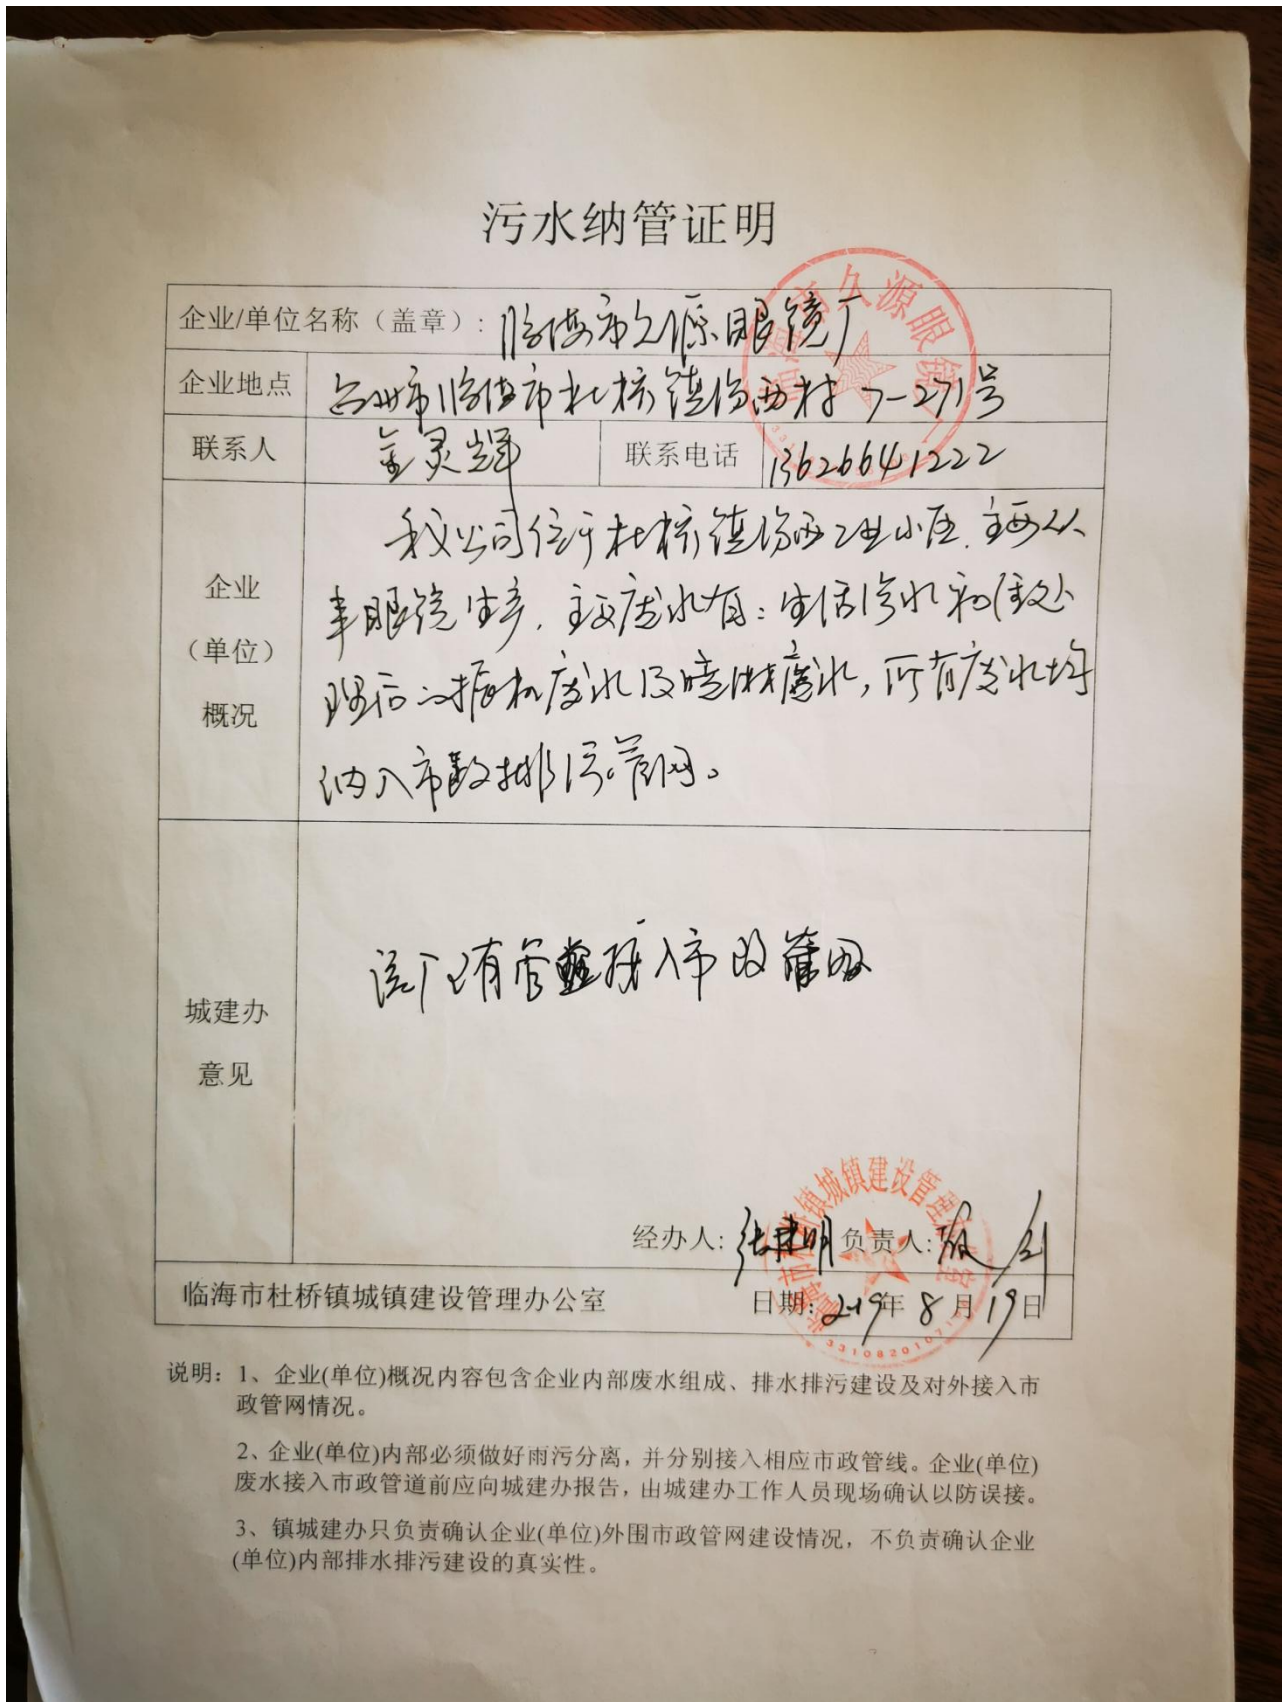 污水纳管证明
临海市久源眼镜厂
企业/单位名称（盖章）: 临海市久源眼镜厂
企业地点 台州市临海市杜桥镇汾西村7-271号
联系人 金灵辉 联系电话 13626641222
企业
（单位）
概况
我公司位于杜桥镇汾西工业小区.主要从
事眼镜生产.主要废水有:生活污水和经处
理后的振机废水及喷淋废水,所有废水均
纳入市政排污管网。
城建办
意见
该厂已有管道接入市政管网
临海市杜桥镇城镇建设管理办公室
经办人: 张建明 负责人:
临海市杜桥镇城镇建设管理办公室 日期: 2019年8月19日
说明: 1、企业(单位)概况内容包含企业内部废水组成、排水排污建设及对外接入市
政管网情况。
2、企业(单位)内部必须做好雨污分离，并分别接入相应市政管线。企业(单位)
废水接入市政管道前应向城建办报告，出城建办工作人员现场确认以防误接。
3、镇城建办只负责确认企业(单位)外围市政管网建设情况，不负责确认企业
(单位)内部排水排污建设的真实性。